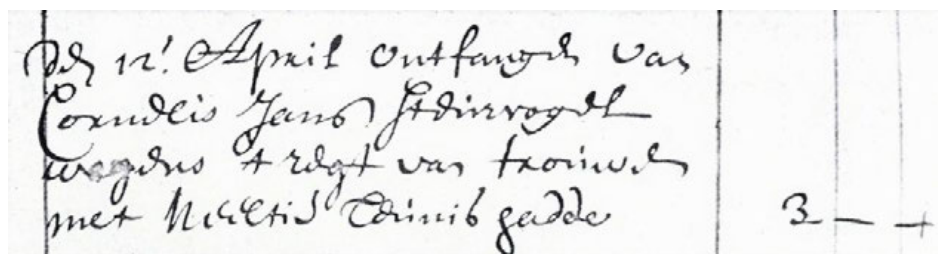 Den 12: April Ontfangen van
Cornelis Jans Stuirvogel
wegens t regt van trouwen
met Neeltie Teunis gadde
3 — —